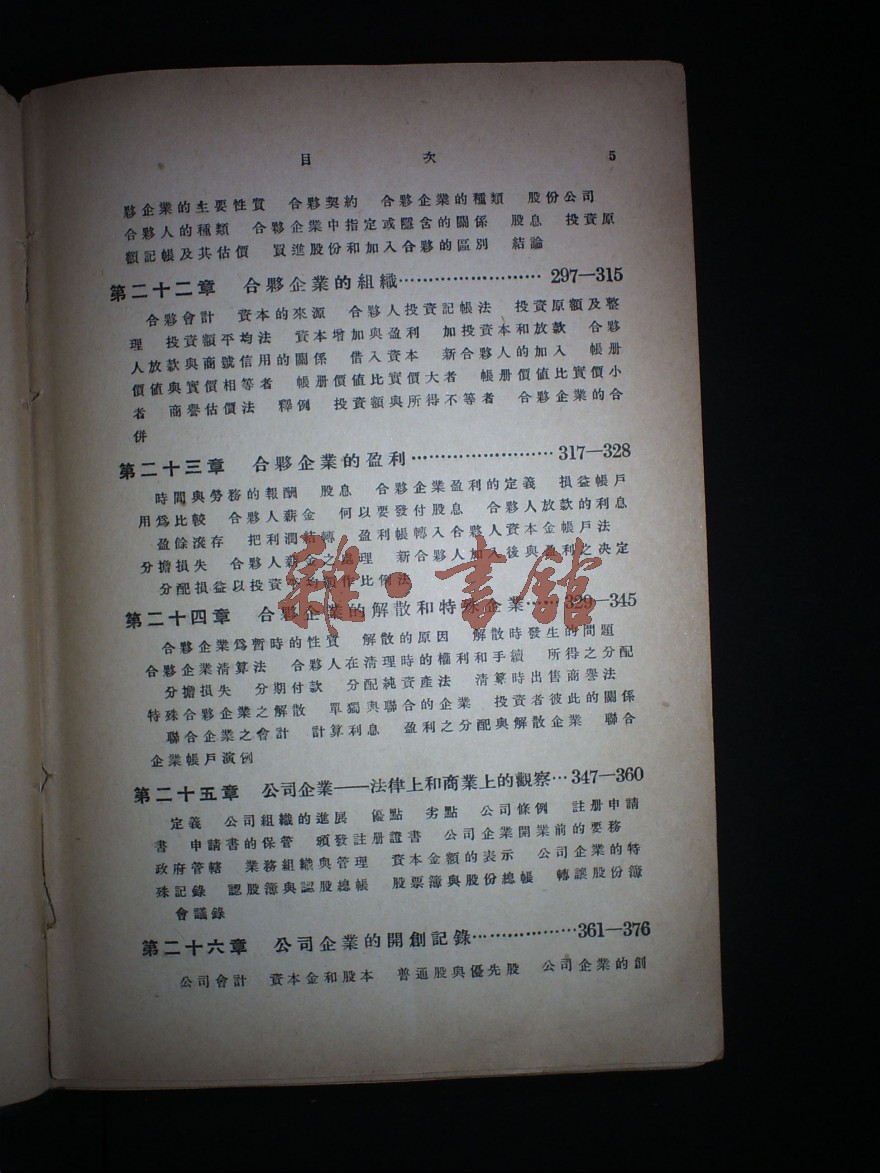 目 次 5
夥企業的主要性質 合夥契約 合夥企業的種類 股份公司
合夥人的種類 合夥企業中指定或隱含的關係 股息 投資原
額記帳及其估價 買進股份和加入合夥的區別 結論
第二十二章 合夥企業的組織……………………297—315
合夥會計 資本的來源 合夥人投資記帳法 投資原額及整
理 投資額平均法 資本增加與盈利 加投資本和放款 合夥
人放款與商號信用的關係 借入資本 新合夥人的加入 帳册
價值與實價相等者 帳册價值比實價大者 帳册價值比實價小
者 商譽估價法 釋例 投資額與所得不等者 合夥企業的合
併
第二十三章 合夥企業的盈利……………………317—328
時間與勞務的報酬 股息 合夥企業盈利的定義 損益帳戶
用爲比較 合夥人薪金 何以要發付股息 合夥人放款的利息
盈餘滾存 把利潤結轉 盈利帳轉入合夥人資本金帳戶法
分擔損失 合夥人薪金之處理 新合夥人加入後與盈利之決定
分配損益以投資平均額作比例法
第二十四章 合夥企業的解散和特殊企業……329—345
合夥企業爲暫時的性質 解散的原因 解散時發生的問題
合夥企業清算法 合夥人在清理時的權利和手續 所得之分配
分擔損失 分期付款 分配純資產法 清算時出售商譽法
特殊合夥企業之解散 單獨與聯合的企業 投資者彼此的關係
聯合企業之會計 計算利息 盈利之分配與解散企業 聯合
企業帳戶演例
第二十五章 公司企業——法律上和商業上的觀察…347—360
定義 公司組織的進展 優點 劣點 公司條例 註册申請
書 申請書的保管 頒發註册證書 公司企業開業前的要務
政府管轄 業務組織與管理 資本金額的表示 公司企業的特
殊記錄 認股簿與認股總帳 股票簿與股份總帳 轉讓股份簿
會議錄
第二十六章 公司企業的開創記錄………………361—376
公司會計 資本金和股本 普通股與優先股 公司企業的創
雜·書館